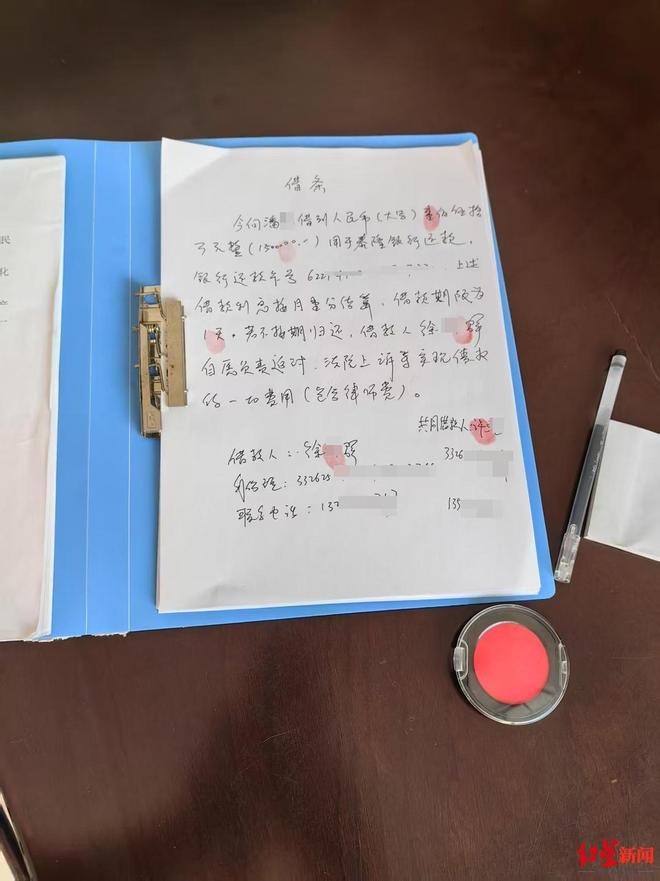 借条
今向潘 借到人民币（大写）壹佰伍拾
万元整（1500000.00）用于泰隆银行还款，
银行还款卡号 622 上述
借款利息按月壹分结算，借款期限为
1天。若不按期归还，借款人徐 群
自愿负责追讨、法院上诉等实现债权
的一切费用（包含律师费）。
共同借款人：许
借款人：徐 群 3326
身份证：332625
联系电话：132 135
民
化
红星新闻